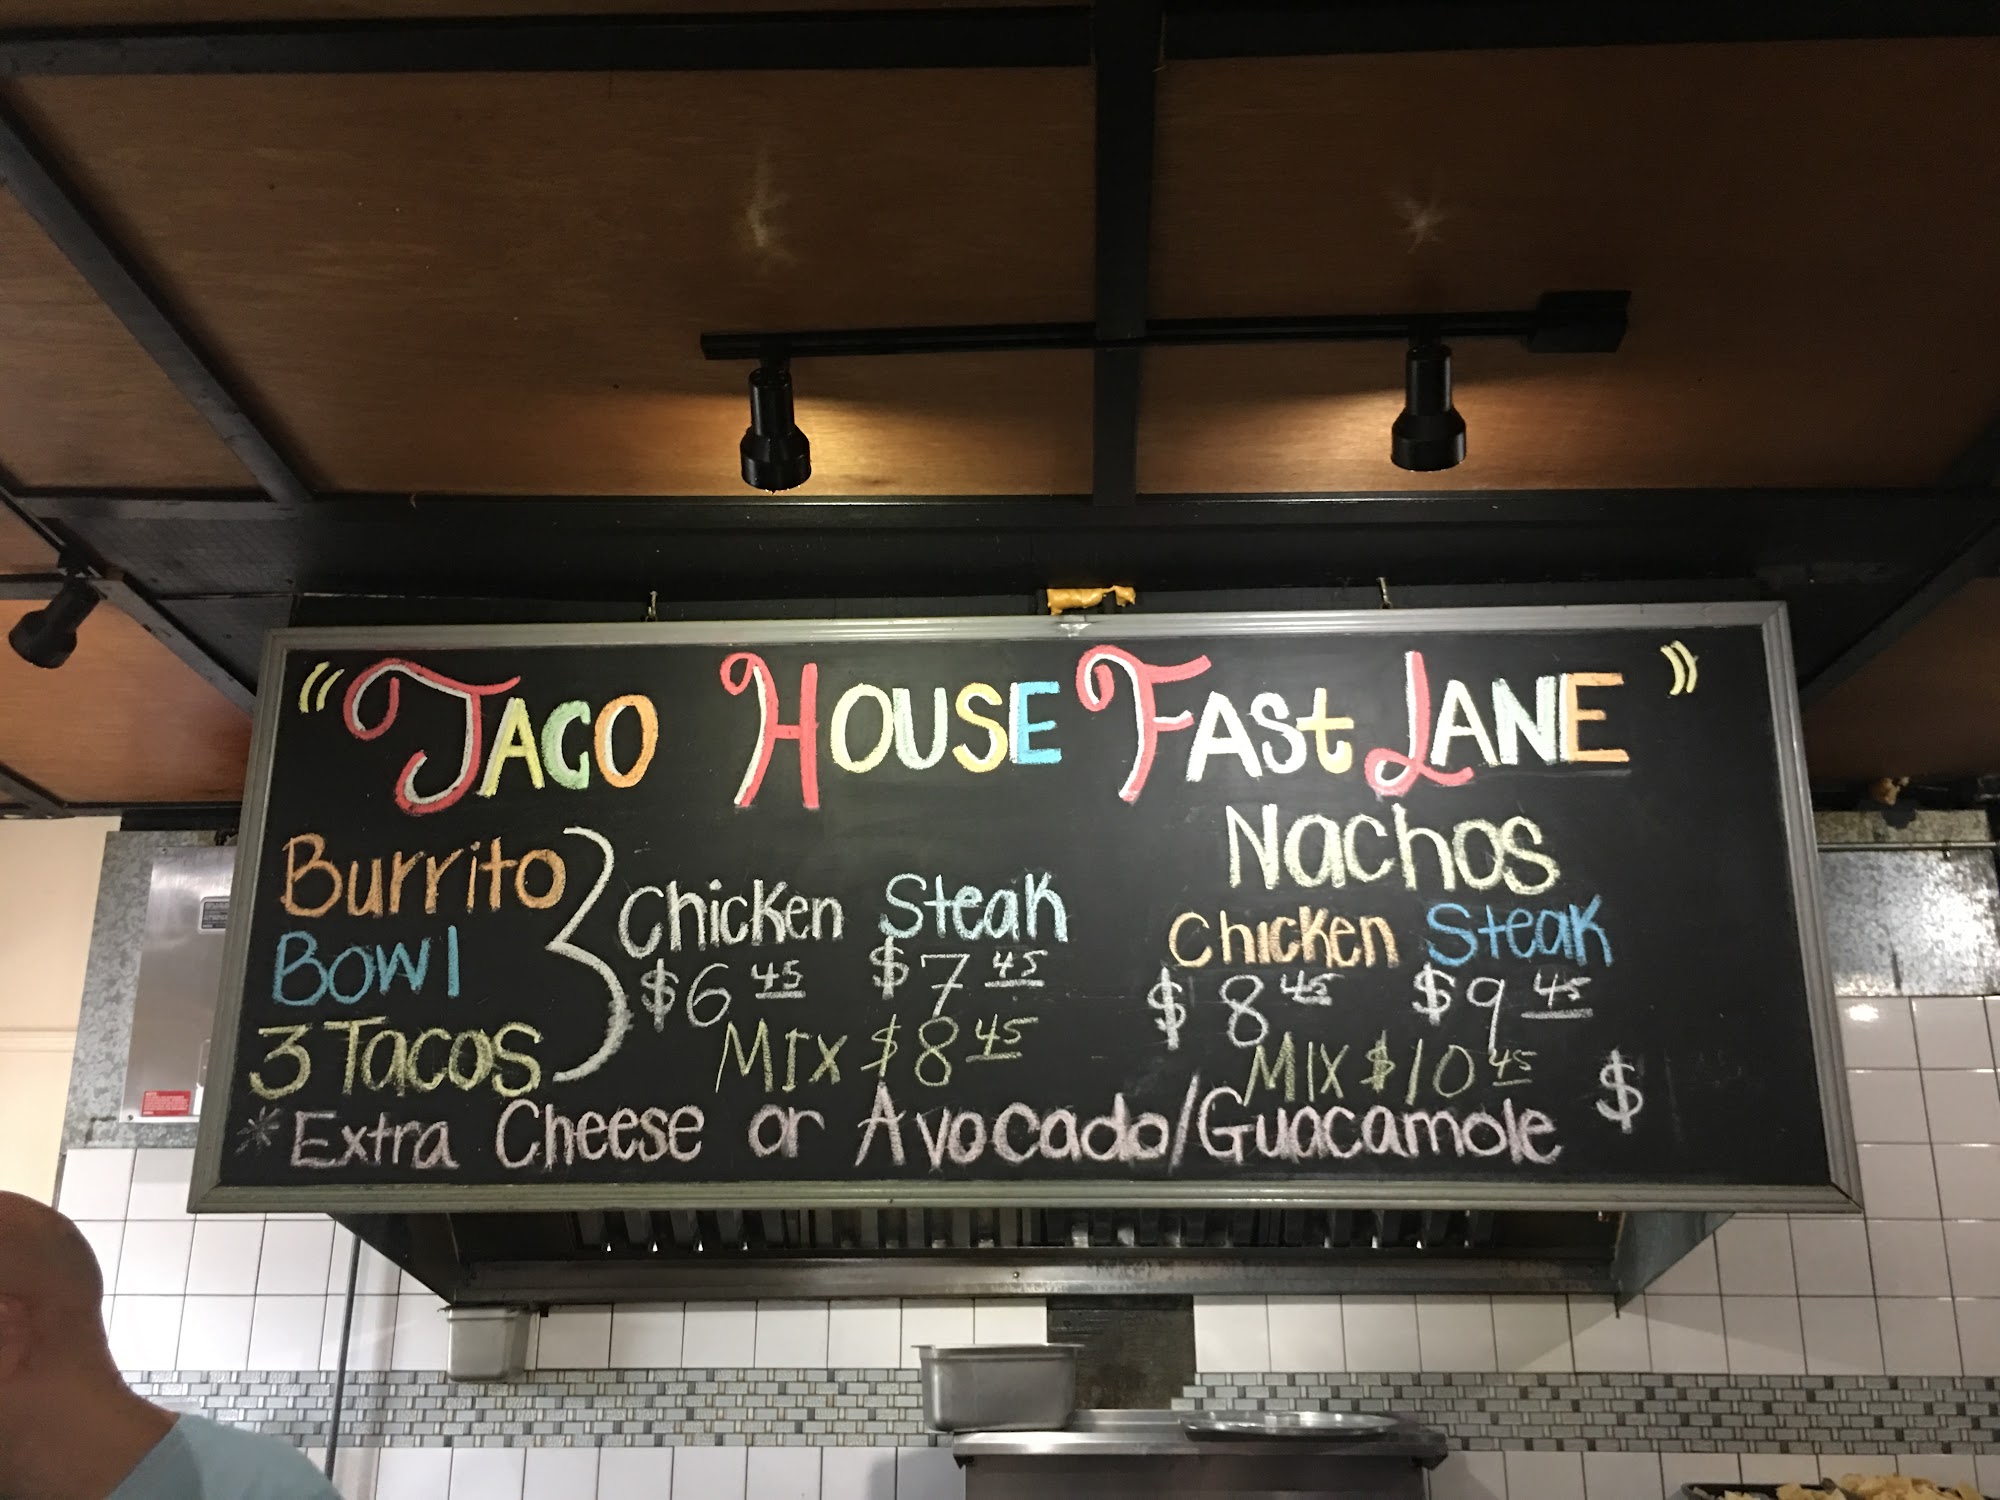 "TACO HOUSE FASt LANE"
Burrito
Bowl
3 Tacos
Chicken Steak
$6 45 $7 45
MIX $8 45
Nachos
Chicken Steak
$8 45 $9 45
MIX $10 45
*Extra Cheese or Avocado/Guacamole $